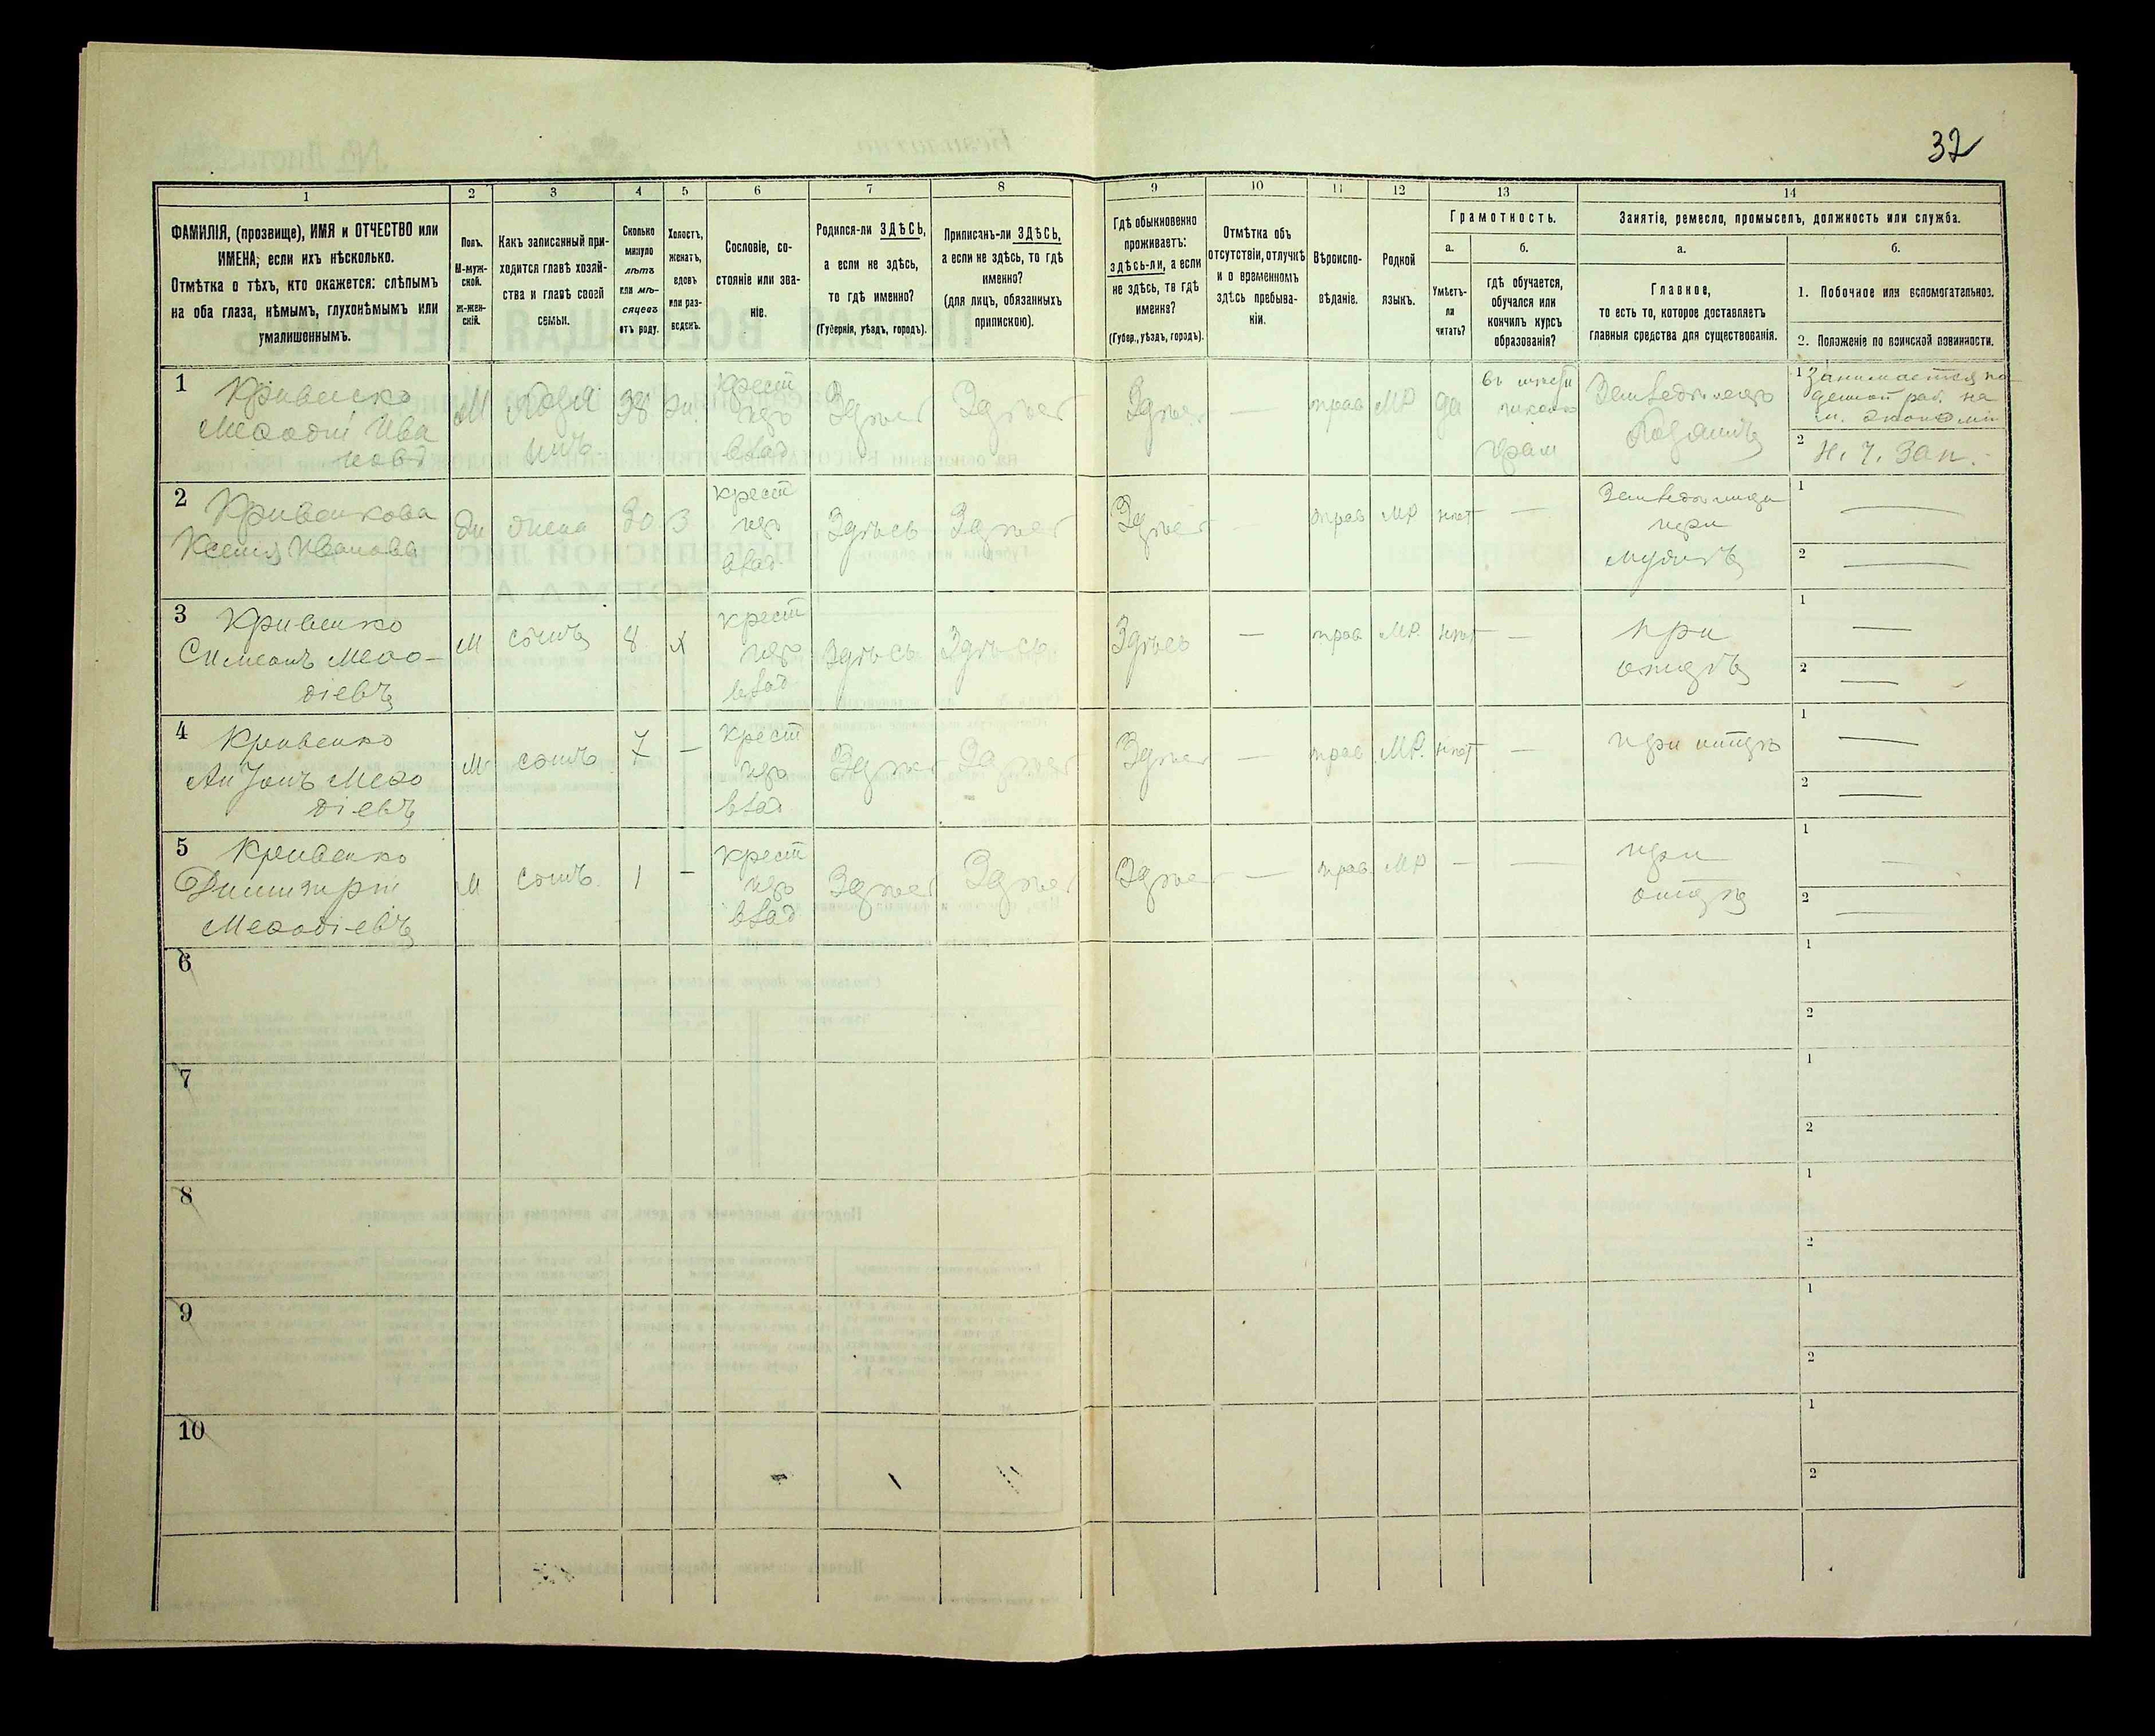 32
1
2
3
4
5
6
7
8
9
10
11
12
13
14
ФАМИЛІЯ, (прозвище), ИМЯ и ОТЧЕСТВО или
ИМЕНА, если ихъ нѣсколько.
Отмѣтка о тѣхъ, кто окажется: слѣпымъ
на оба глаза, нѣмымъ, глухонѣмымъ или
умалишеннымъ.
Полъ.
М-муж-
ской.
Ж-жен-
скій.
Какъ записанный при-
ходится главѣ хозяй-
ства и главѣ своей
семьи.
Сколько
минуло
лѣтъ
или мѣ-
сяцевъ
отъ роду.
Холостъ,
женатъ,
вдовъ
или раз-
веденъ.
Сословіе, со-
стояніе или зва-
ніе.
Родился-ли ЗДѢСЬ,
а если не здѣсь,
то гдѣ именно?
(Губернія, уѣздъ, городъ).
Приписанъ-ли ЗДѢСЬ,
а если не здѣсь, то гдѣ
именно?
(для лицъ, обязанныхъ
припискою).
Гдѣ обыкновенно
проживаетъ:
здѣсь-ли, а если
не здѣсь, то гдѣ
именно?
(Губер., уѣздъ, городъ).
Отмѣтка объ
отсутствіи, отлучкѣ
и о временномъ
здѣсь пребыва-
ніи.
Вѣроиспо-
вѣданіе.
Родной
языкъ.
Грамотность.
а.
б.
Умѣетъ-
ли
читать?
гдѣ обучается,
обучался или
кончилъ курсъ
образованія?
Занятіе, ремесло, промыселъ, должность или служба.
а.
б.
Главное,
то есть то, которое доставляетъ
главныя средства для существованія.
1. Побочное или вспомогательное.
2. Положеніе по воинской повинности.
1
Кривенко
Меѳодій Ива
новъ
М
хозя
инъ
38
жн.
крест
изъ
влад
Здѣсь
Здѣсь
Здѣсь
—
прав
МР
да
школѣ
Земледѣлецъ
хозяинъ
1 Занимается по
2 Н. Ч. Зап.
2
Кривенкова
Ксенія Иванова
жн
жена
30
З
крест
изъ
влад.
Здѣсь
Здѣсь
Здѣсь
—
прав
МР
нѣт
—
при
мужѣ
1 —
2 —
3
Кривенко
Симеонъ Меѳо-
діевъ
М
сынъ
8
х
крест
изъ
влад
Здѣсь
Здѣсь
Здѣсь
—
прав
МР.
нѣт
—
при
отцѣ
1 —
2 —
4
Кривенко
Антонъ Меѳо
діевъ
М
сынъ
7
—
крест
изъ
влад
Здѣсь
Здѣсь
Здѣсь
—
прав
МР.
нѣт
—
при отцѣ
1 —
2 —
5
Кривенко
Димитрій
Меѳодіевъ
М
сынъ.
1
—
крест
изъ
влад
Здѣсь
Здѣсь
Здѣсь
—
прав.
МР
—
—
при
отцѣ
1 —
2 —
6
1
2
7
1
2
8
1
2
9
1
2
10
1
2